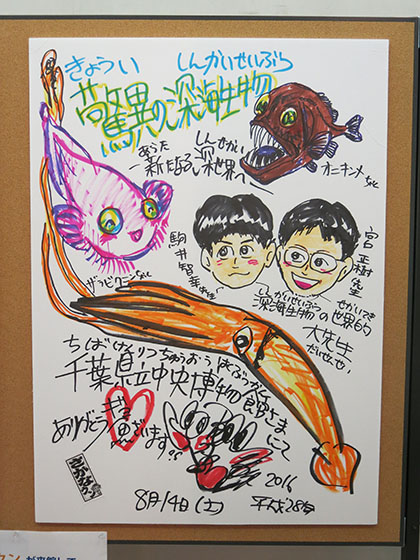 きょうい しんかいせいぶつ
驚異の深海生物
あらた しんせかい
新たなる深世界へ
オニキンメちゃん
ザラビクニンちゃん
駒井智幸先生
宮正樹先生
しんかいせいぶつ せかいてき
深海生物の世界的
大先生
だいせんせい
ちばけんりつちゅうおうはくぶつかん
千葉県立中央博物館さまにて
ありがとう
ぎょ
魚ざいます!!
2016
8月14日(土) 平成28年